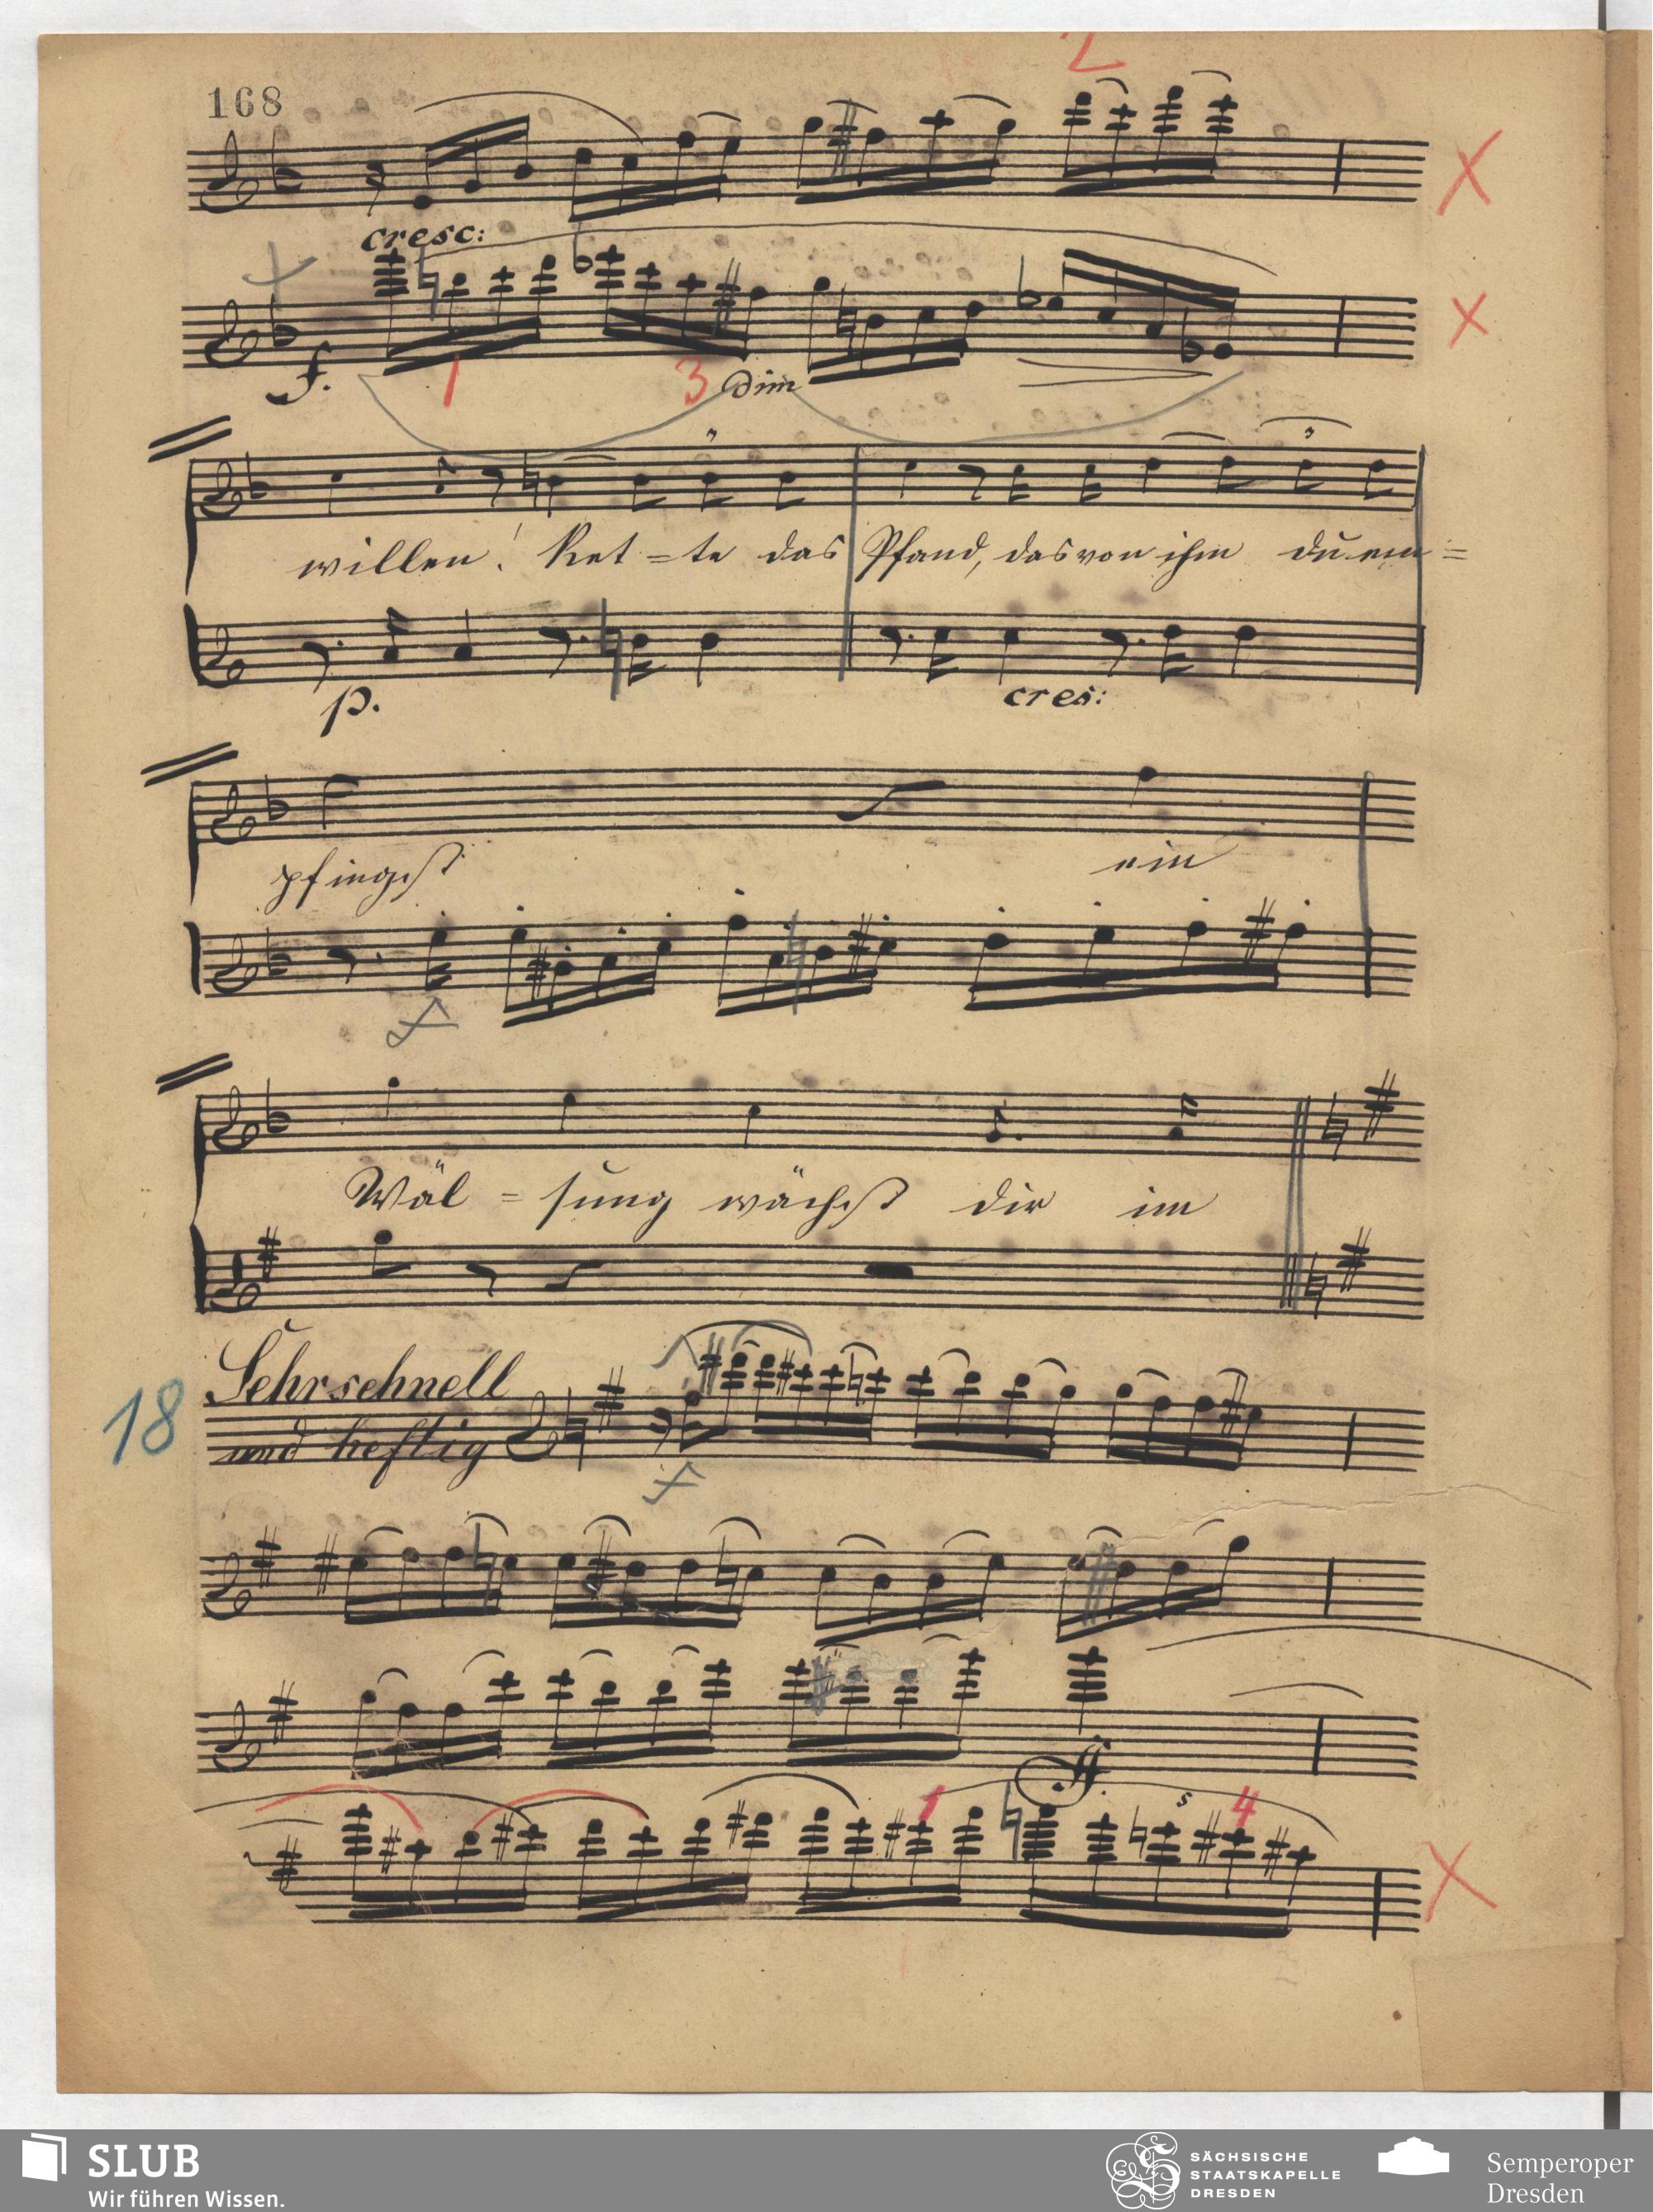 168
2
cresc:
f. 1 3 dim
3 3
willen! Ret=te das Pfand, das von ihm du em=
p. cres:
pfingst ein
f
Wäl=sung wächst dir im
18 Sehr schnell
und heftig
f
ff.
1 5 4
SLUB
Wir führen Wissen.
SÄCHSISCHE
STAATSKAPELLE
DRESDEN
Semperoper
Dresden